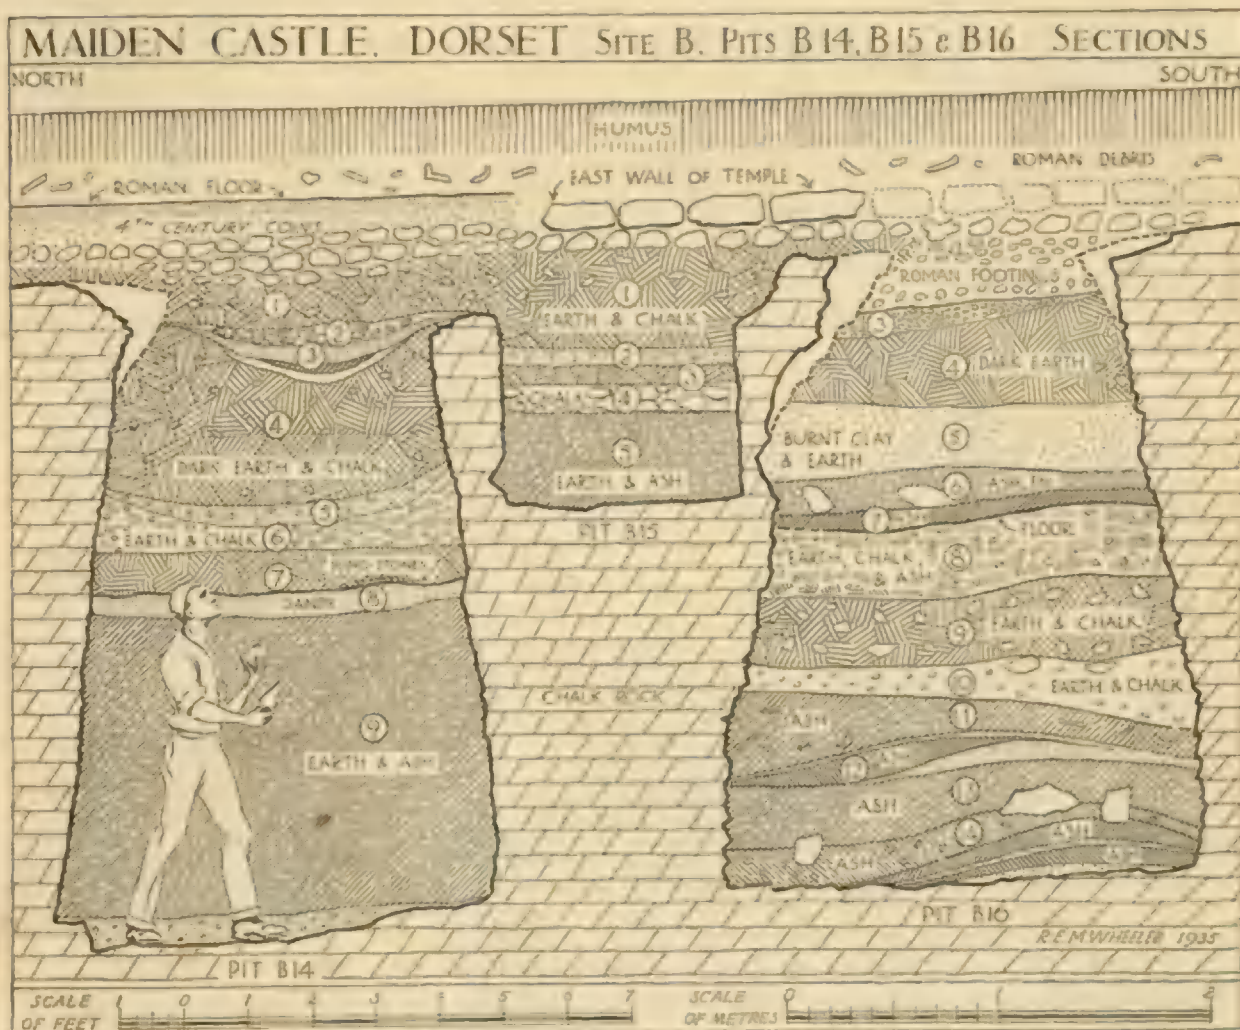 MAIDEN CASTLE. DORSET SITE B. PITS B14, B15 & B16 SECTIONS
NORTH
SOUTH
HUMUS
ROMAN DEBRIS
ROMAN FLOOR
EAST WALL OF TEMPLE
4TH CENTURY COINS
ROMAN FOOTINGS
1
2
3
4
DARK EARTH & CHALK
5
EARTH & CHALK 6
7
8
9
EARTH & ASH
1
EARTH & CHALK
2
3
CHALK 4
5
EARTH & ASH
PIT B15
CHALK ROCK
3
4 DARK EARTH
BURNT CLAY
& EARTH
5
6
7
FLOOR
EARTH, CHALK
& ASH
8
9
EARTH & CHALK
10
EARTH & CHALK
ASH
11
12
ASH
13
ASH
14
ASH
ASH
PIT B16
R.E.M. WHEELER 1935
PIT B14
SCALE
OF FEET
1 0 1 2 3 4 5 6 7
SCALE
OF METRES
0 1 2